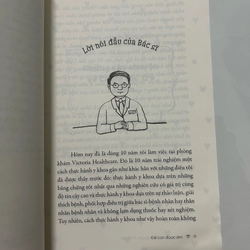 Lời nói đầu của Bác sĩ
Hôm nay đã là đúng 10 năm tôi làm việc tại phòng
khám Victoria Healthcare. Đó là 10 năm trải nghiệm một
cách thực hành y khoa gần như khác hẳn với những điều tôi
đã được thấy trước đó: thực hành y khoa dựa trên những
bằng chứng tốt nhất qua những nghiên cứu có giá trị cùng
độ tin cậy cao và thực hành y khoa dựa trên sự thảo luận, giải
thích bệnh, phối hợp điều trị giữa bác sĩ-bệnh nhân hay thân
nhân bệnh nhân và không lạm dụng thuốc hay xét nghiệm.
Tuy nhiên, cách thực hành y khoa như vậy hoàn toàn không